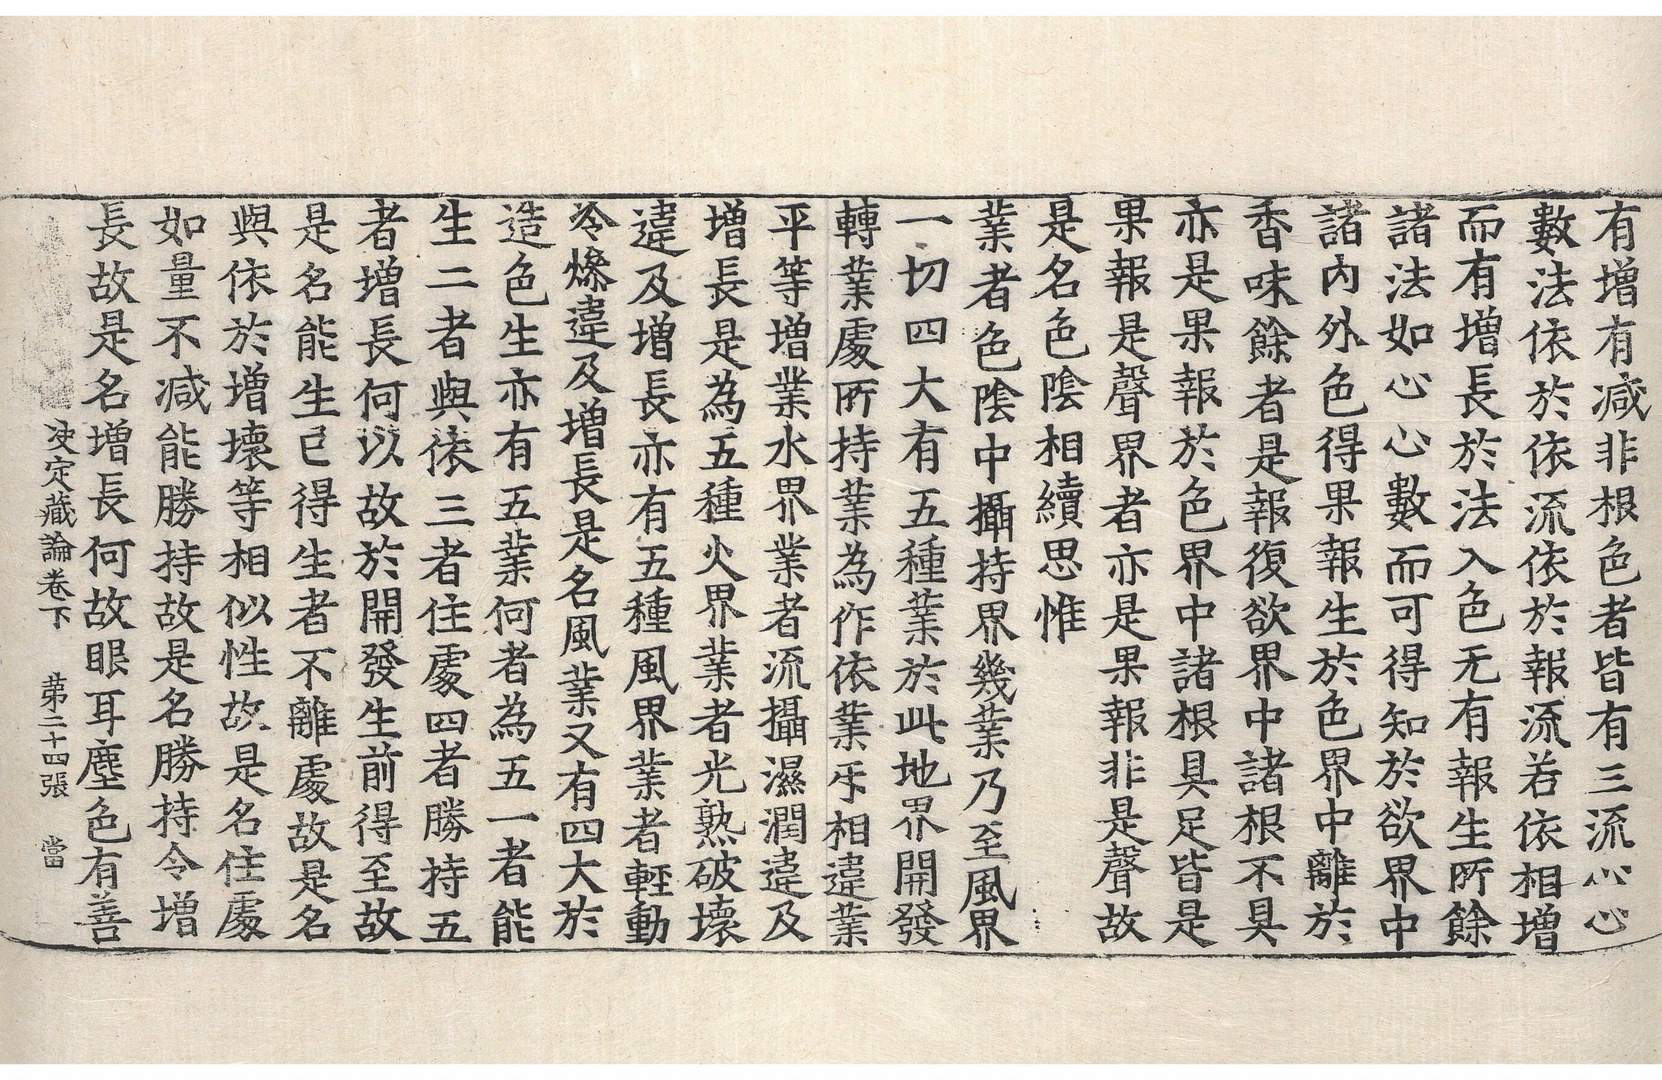 有增有减非根色者皆有三流心心
數法依於依流依於報流若依相增
而有增長於法入色无有報生所餘
諸法如心心數而可得知於欲界中
諸内外色得果報生於色界中離於
香味餘者是報復欲界中諸根不具
亦是果報於色界中諸根具足皆是
果報是聲界者亦是果報非是聲故
是名色陰相續思惟
業者色陰中攝持界幾業乃至風界
一切四大有五種業於此地界開發
轉業處所持業為作依業乎相違業
平等增業水界業者流攝濕潤違及
增長是為五種火界業者光熟破壞
違及增長亦有五種風界業者輕動
冷燥違及增長是名風業又有四大於
造色生亦有五業何者為五一者能
生二者與依三者住處四者勝持五
者增長何以故於開發生前得至故
是名能生已得生者不離處故是名
與依於增壞等相似性故是名住處
如量不减能勝持故是名勝持令增
長故是名增長何故眼耳塵色有善
决定藏論卷下 苐二十四張 當